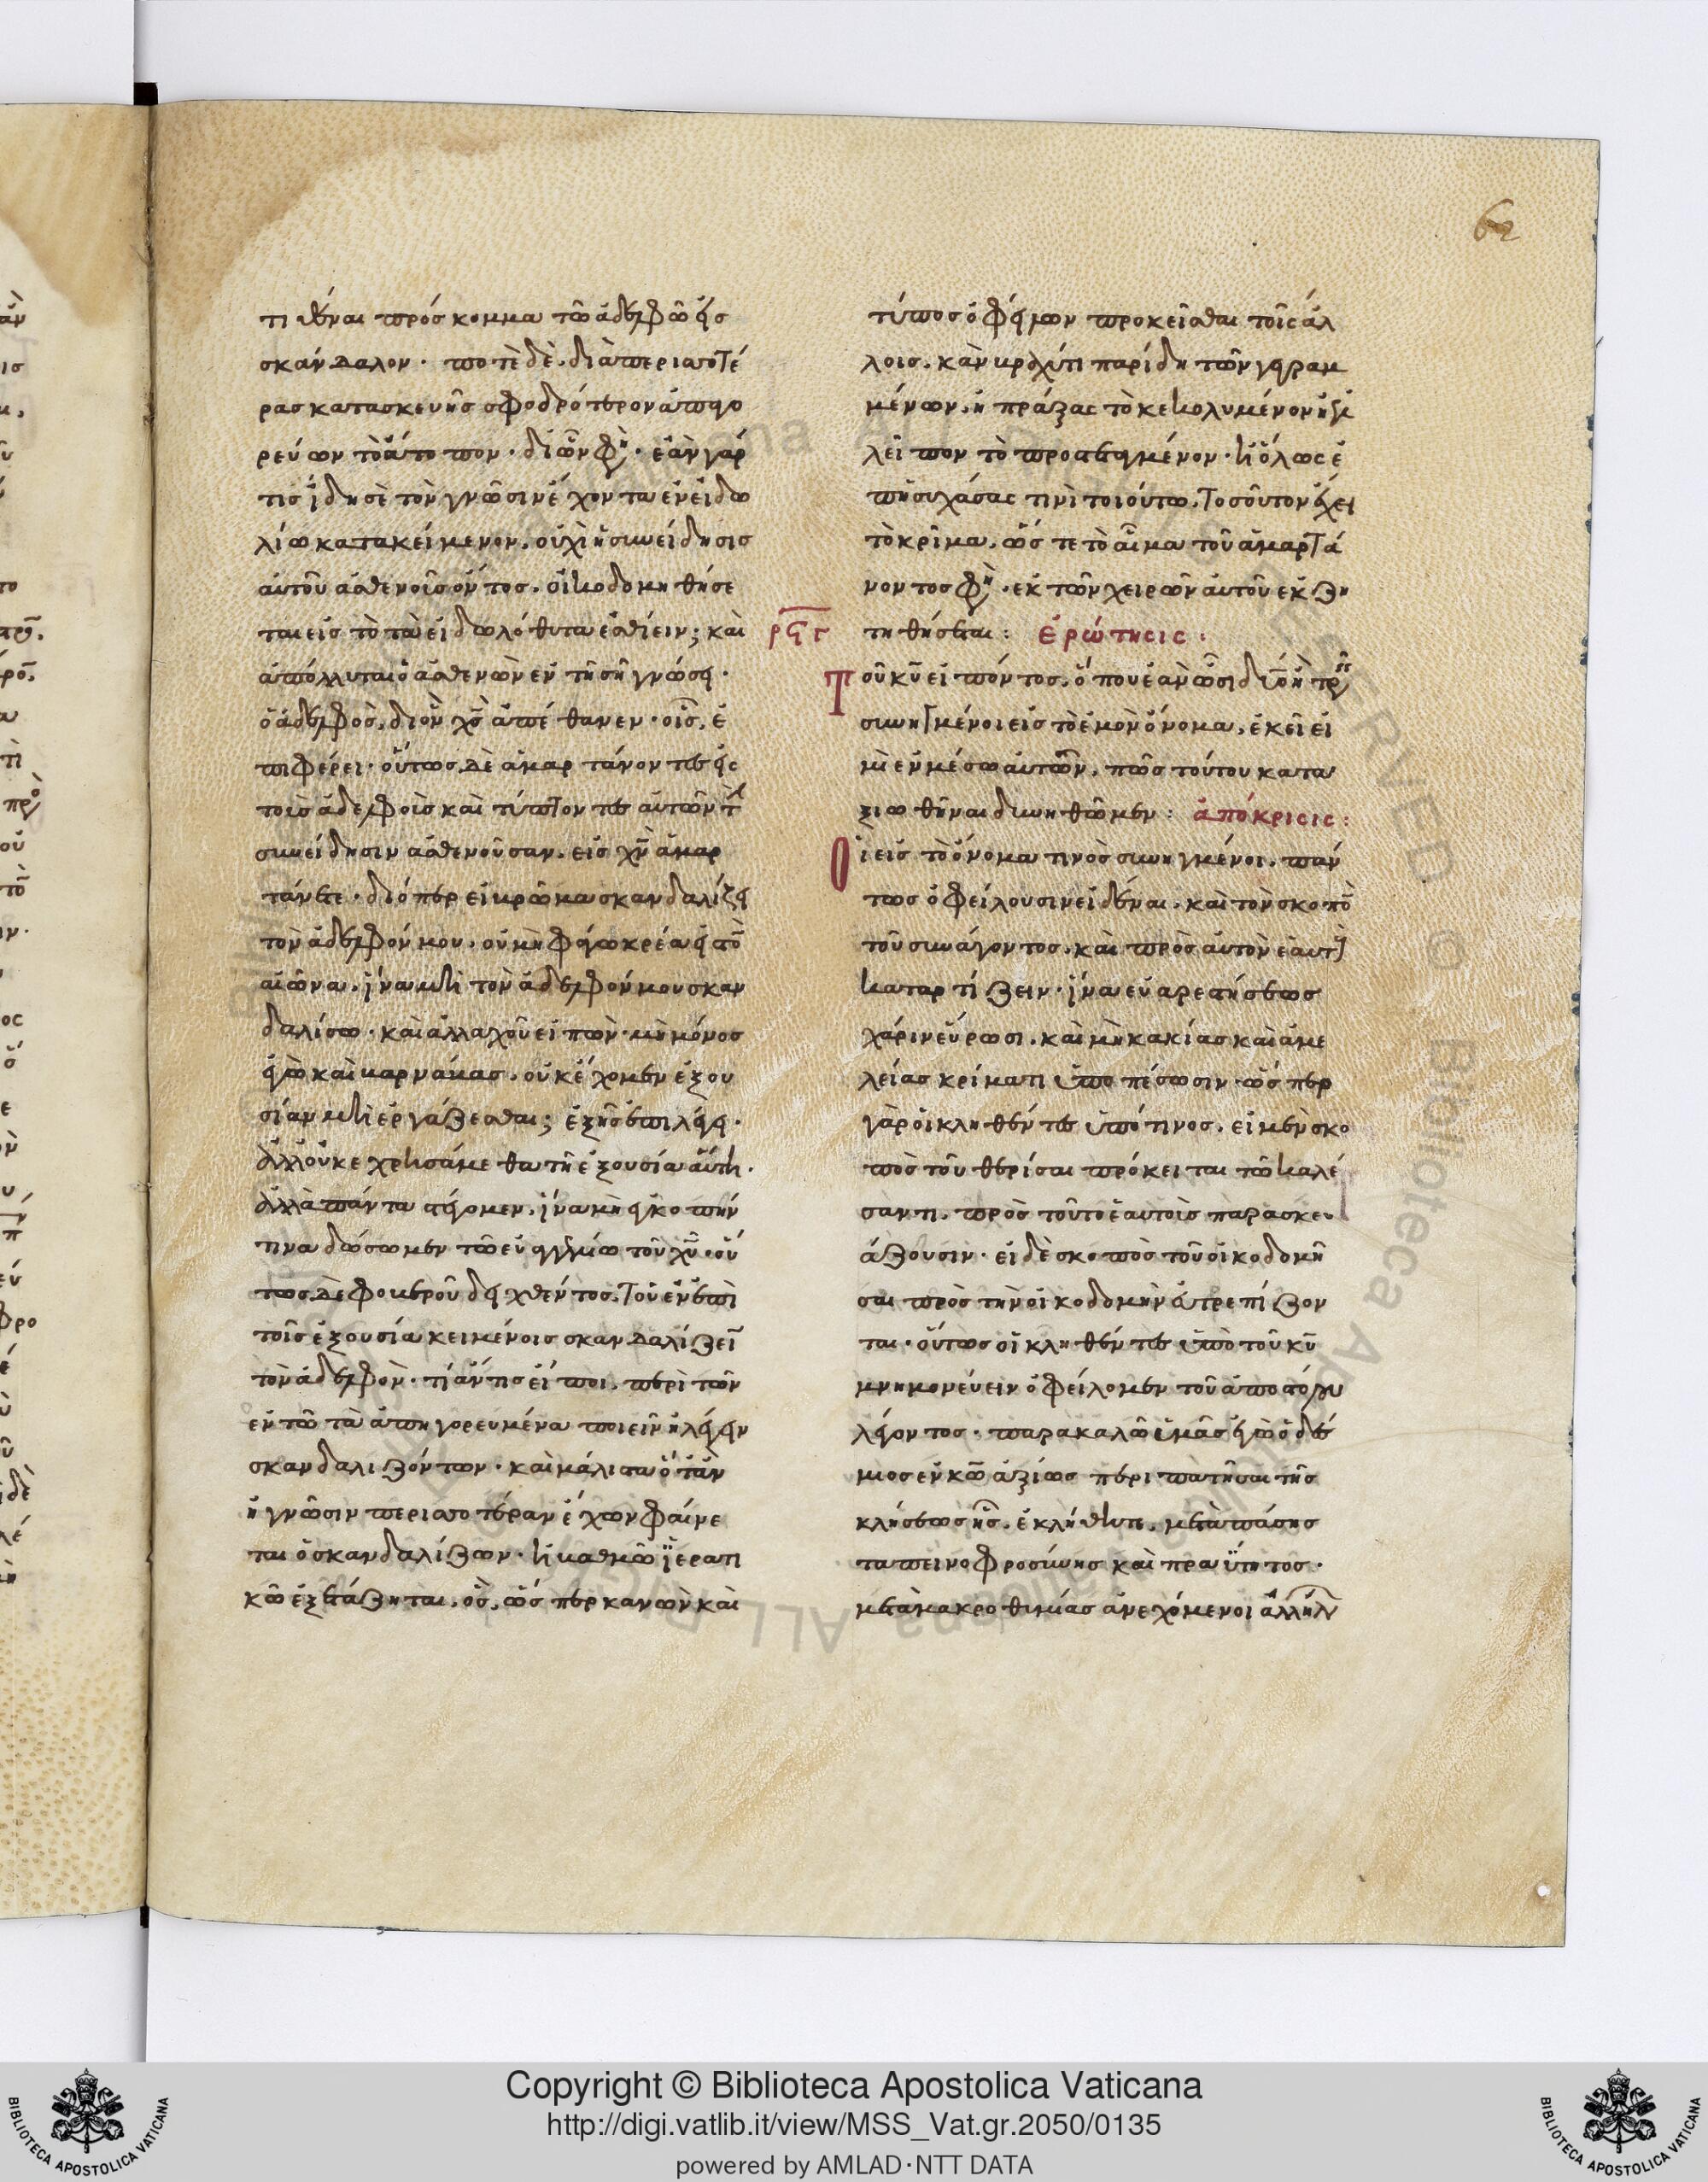 62
τιθέναι πρόσκομμα τῶ ἀδελφῶ ἢ εἰσ
σκάνδαλον· ποτὲ δὲ, διὰ περισσοτέ
ρασ κατασκευῆσ σφοδρότερον ἀπαγο
ρεύων τὸ ἄτοπον· δι' ὧν φη· ἐὰν γάρ
τισ ἴδη σὲ τὸν γνῶσιν ἔχοντα ἐν εἰδω
λίω κατακείμενον, οὐχὶ ἡ συνείδησισ
αὐτοῦ ἀσθενοῦσ ὄντοσ, οἰκοδομηθήσε
ται εἰσ τὸ τὰ εἰδωλόθυτα ἐσθίειν; καὶ
ἀπόλλυται ὁ ἀσθενῶν ἐν τῆ σῆ γνώσει·
ὁ ἀδελφὸσ, δι' ὃν χσ ἀπέθανεν· οἷσ, ἐ
πιφέρει· οὕτωσ δὲ ἁμαρτάνοντεσ εἰς
τοὺσ ἀδελφοὺσ καὶ τύπτοντεσ αὐτῶν τὴν
συνείδησιν ἀσθενοῦσαν, εἰσ χν ἁμαρ
τάνετε· διόπερ εἰ βρῶμα σκανδαλίζει
τὸν ἀδελφόν μου, οὐ μὴ φάγω κρέα εἰσ τὸν
αἰῶνα, ἵνα μὴ τὸν ἀδελφόν μου σκαν
δαλίσω· καὶ ἀλλαχοῦ εἰπὼν· ἢ μόνοσ
ἐγὼ καὶ βαρνάβασ, οὐκ ἔχομεν ἐξου
σίαν μὴ ἐργάζεσθαι; ἑξῆσ ἐπιλέγει·
ἀλλ' οὐκ ἐχρησάμεθα τῆ ἐξουσία αὐτῆ·
ἀλλὰ πάντα στέγομεν, ἵνα μὴ ἐγκοπήν
τινα δώσωμεν τῶ εὐαγγελίω τοῦ χυ· οὕ
τωσ δὲ φοβεροῦ δειχθέντοσ, τοῦ ἐν ἐπὶ
τοῖσ ἐξουσία κειμένοισ σκανδαλίζειν
τὸν ἀδελφὸν· τί ἄν τισ εἴποι, περὶ τῶν
ἐν τῶ τὰ ἀπηγορευμένα ποιεῖν ἢ λέγειν
σκανδαλιζόντων· καὶ μάλιστα ὅταν
ἢ γνῶσιν περισσοτέραν ἔχων φαίνε
ται ὁ σκανδαλίζων· ἢ βαθμῶ ἱερατι
κῶ ἐξετάζηται, ὃσ, ὥσπερ κανὼν καὶ
τύποσ ὀφείλων προκεῖσθαι τοῖς ἄλ
λοισ, κὰν βραχύ τι παρίδη τῶν γεγραμ
μένων, ἢ πράξας τὸ κεκολυμένον ἢ ἐλ
λείπον τὸ προστεταγμένον· ἢ ὅλως ἐ
φησυχάσας τινὶ τοιούτω, τοσοῦτον ἔχει
τὸ κρῖμα, ὥστε τὸ αἷμα τοῦ ἁμαρτά
νοντοσ φη· ἐκ τῶν χειρῶν αὐτοῦ ἐκζη
τηθήσεται: ἐρώτησις·
Τοῦ κυ εἰπόντοσ, ὅπου ἐὰν ὦσι δύο ἢ τρεῖσ
συνηγμένοι εἰσ τὸ ἐμὸν ὄνομα, ἐκεῖ εἰ
μὶ ἐν μέσω αὐτῶν, πῶσ τούτου κατα
ξιωθῆναι δυνηθῶμεν: ἀπόκρισις:
Οἱ εἰσ τὸ ὄνομα τινὸσ συνηγμένοι, πάν
τωσ ὀφείλουσιν εἰδέναι, καὶ τὸν σκοπὸν
τοῦ συνάγοντοσ, καὶ πρὸσ αὐτὸν ἑαυτοὺσ
καταρτίζειν· ἵνα εὐαρεστήσεωσ
χάριν εὕρωσι, καὶ μὴ κακίασ καὶ ἀμε
λείασ κρίματι ὑποπέσωσιν· ὥσπερ
γὰρ οἱ κληθέντεσ ὑπό τινοσ, εἰ μὲν σκο
πὸσ τοῦ θερίσαι πρόκειται τῶ καλέ
σαντι, πρὸσ τοῦτο ἑαυτοὺσ παρασκευ
άζουσιν· εἰ δὲ σκοπὸσ τοῦ οἰκοδομῆ
σαι πρὸσ τὴν οἰκοδομὴν εὐτρεπίζον
ται· οὕτωσ οἱ κληθέντεσ ὑπὸ τοῦ κυ
μνημονεύειν ὀφείλομεν τοῦ ἀποστόλου
λέγοντοσ· παρακαλῶ ὑμᾶσ ἐγὼ ὁ δέσ
μιοσ ἐν κω ἀξίωσ περιπατῆσαι τῆσ
κλήσεωσ ἧσ, ἐκλήθητε, μετὰ πάσησ
ταπεινοφροσύνησ καὶ πραϋτητοσ·
μετὰ μακροθυμίασ ἀνεχόμενοι ἀλλήλων
Copyright © Biblioteca Apostolica Vaticana
http://digi.vatlib.it/view/MSS_Vat.gr.2050/0135
powered by AMLAD·NTT DATA
BIBLIOTECA APOSTOLICA VATICANA
BIBLIOTECA APOSTOLICA VATICANA